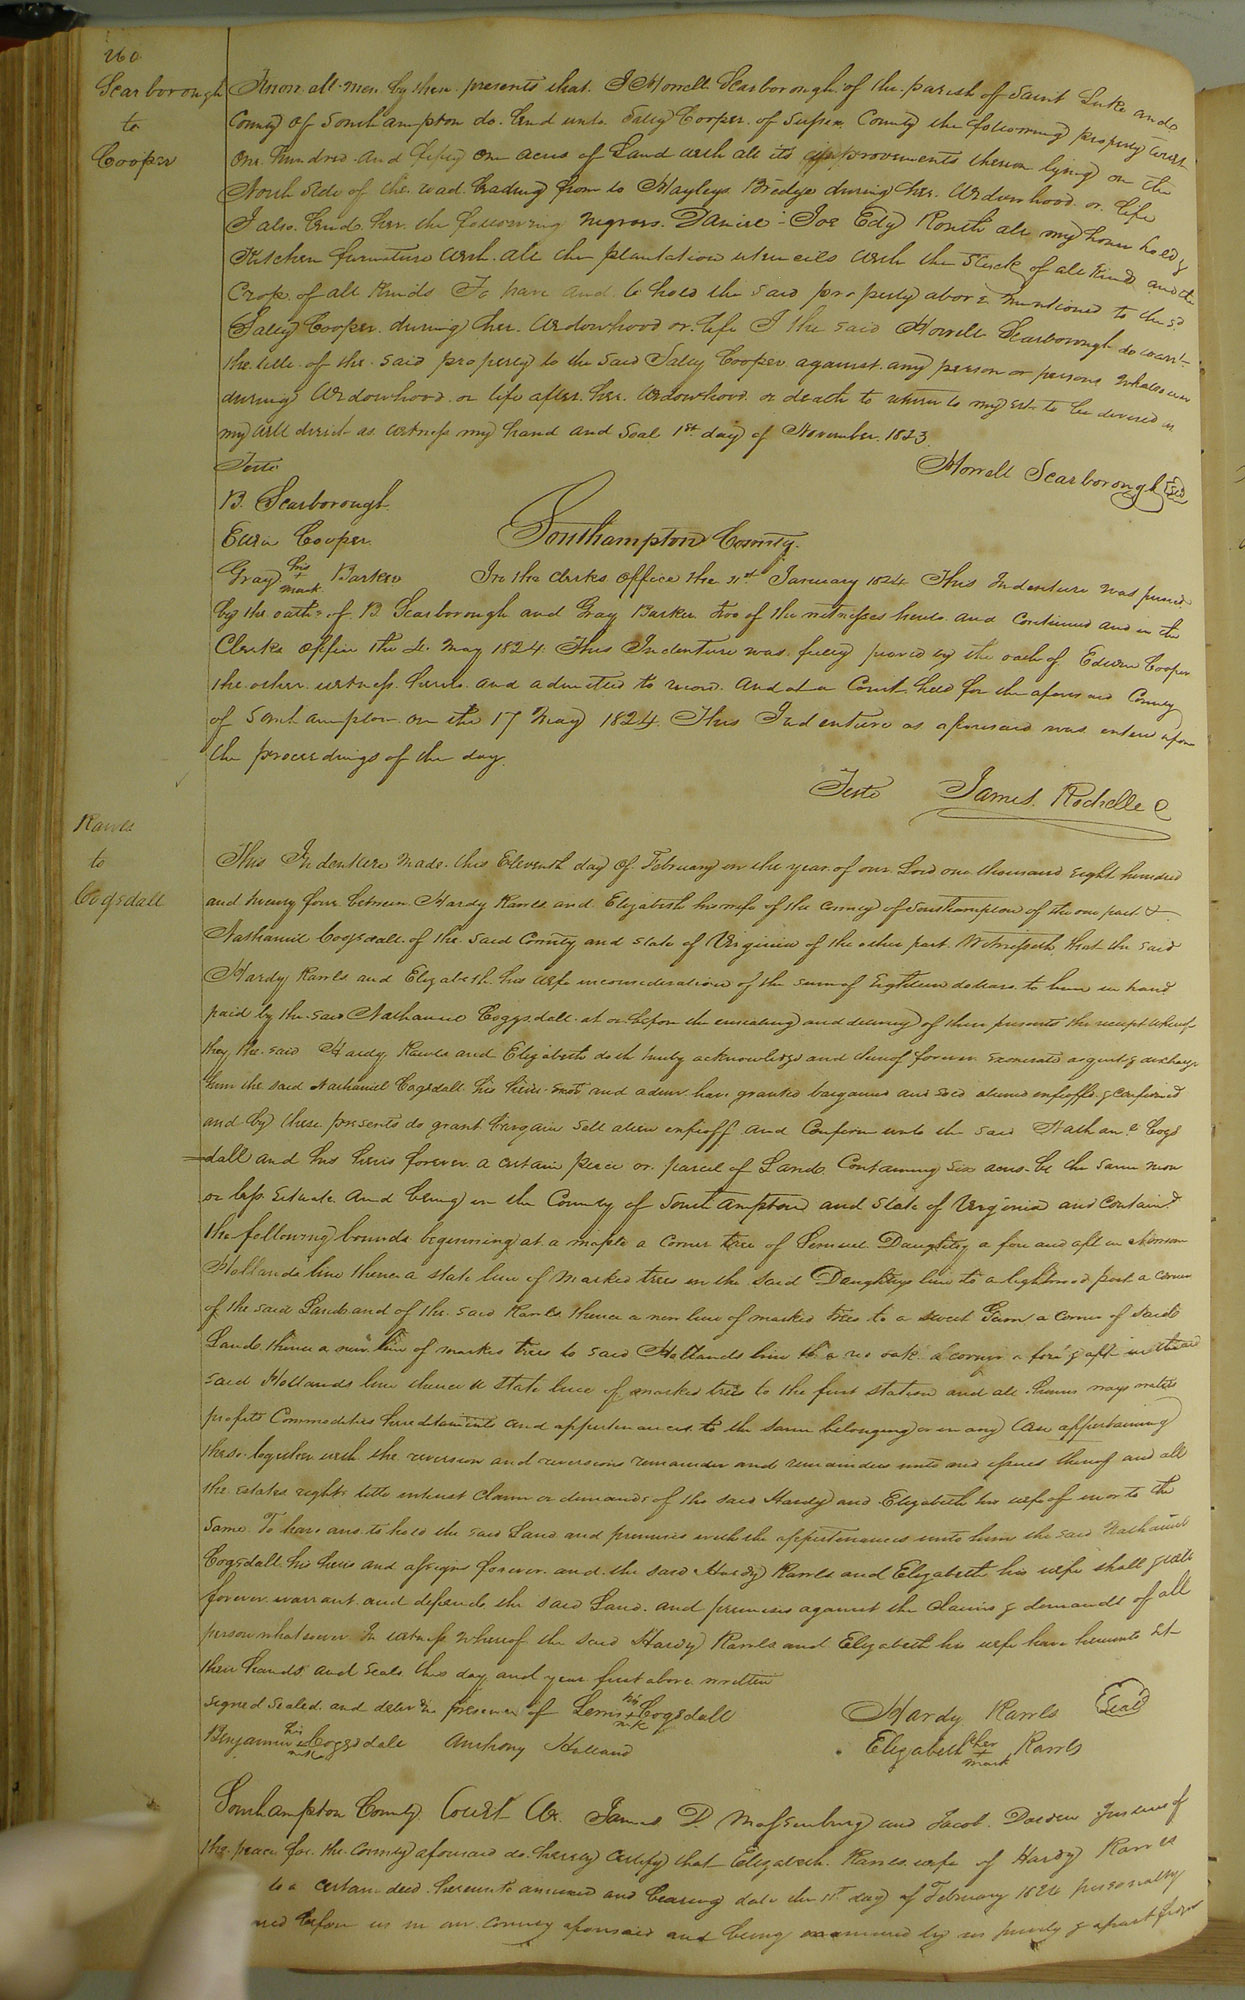 260
Scarborough
to
Cooper
Know all men by these presents that I Howell Scarborough of the parish of Saint Luke and
County of Southampton do lend unto Sally Cooper of Sussex County the following property to wit
One hundred and fifty one acres of Land with all its improvements thereon lying on the
North side of the road leading from to Hayleys Bridge during her Widowhood or life
I also lend her the following negroes Daniel Joe Edy all my house hold &
Kitchen furniture with all the plantation utencils with the Stock of all kind and the
Crop of all kinds To have and to hold the said property above mentioned to the sd.
Salley Cooper during her Widowhood or life I the said Howell Scarborough do warrt
the title of the said property to the said Salley Cooper against any person or persons whatsoever
during Widowhood or life after her Widowhood or death to return to my Est to be devised as
my will direct as witness my hand and Seal 1st day of November 1823
Howell Scarborough Seal
Teste
B. Scarborough
Edwin Cooper
Gray his + mark Barker
Southampton County.
In the clerks office the 21st January 1824 This Indenture was proved
by the oaths of B. Scarborough and Gray Barker two of the witnesses hereto and Continued and in the
Clerks office the May 1824 This Indenture was fully proved by the oath of Edwin Cooper
the other witness hereto and admitted to record And at a Court held for the aforesaid County
of Southampton on the 17 May 1824 This Indenture as aforesaid was entered upon
the proceedings of the day.
Teste James Rochelle C
Rawls
to
Cogsdall
This Indenture made this Eleventh day of February in the year of our Lord one thousand eight hundred
and twenty four between Hardy Rawls and Elizabeth his wife of the County of Southampton of the one part &
Nathaniel Cogsdall of the said County and state of Virginia of the other part Witnesseth that the said
Hardy Rawls and Elizabeth his wife in consideration of the sum of Eighteen dollars to him in hand
paid by the said Nathaniel Coggsdall at or before the ensealing and delivery of these presents the receipt whereof
they the said Hardy Rawls and Elizabeth doth hereby acknowledge and thereof forever exonerate acquit & discharge
him the said Nathaniel Cogsdall his heirs and have granted bargained and sold aliened enfeoffed & confirmed
and by these presents do grant bargain sell alien enfeoff and Confirm unto the said Nathanl Cogs
=dall and his heirs forever a certain piece or parcel of Land Containing six acres be the same more
or less situate and being in the County of Southampton and State of Virginia and containd
the following bounds beginning at a maple a corner tree of Lemuel Daughtry a fore and aft in
Hollands line thence a state line of marked trees in the said Daughtrys line to a lightwood post a corner
of the said Lands and of the said Rawls thence a new line of marked trees to a sweet Gum a corner of said
Lands thence a new line of marked trees to said Hollands line to a red oak a corner a fore & aft in the said
said Hollands line thence a state line of marked trees to the first station and all houses ways waters
profits Commodities hereditaments and appurtenances to the same belonging or in any wise appertaining
these together with the reversion and reversions remainder and remainders and issues thereof and all
the estates right title interest claim or demands of the said Hardy and Elizabeth his wife of in or to the
same To have and to hold the said Land and premises with the appurtenances unto him the said Nathaniel
Cogsdall his heirs and assigns forever and the said Hardy Rawls and Elizabeth his wife shall
forever warrant and defend the said Land and premises against the claims & demands of all
person whatsoever In witness whereof the said Hardy Rawls and Elizabeth his wife have hereunto set
their hands and seals this day and year first above written
signed sealed and in presence of Lewis his + mk Cogsdall
Benjamin his + mark Coggsdale Anthony Holland
Hardy Rawls Seal
Elizabeth her + mark Rawls
Southampton County Court We James D. Massenburg and Jacob Darden Justices of
the peace for the County aforesaid do hereby certify that Elizabeth Rawls wife of Hardy Rawls
to a certain deed hereunto annexed and bearing date the 11th day of February 1824 personally
before us in our County aforesaid and being examined by us privily & apart from